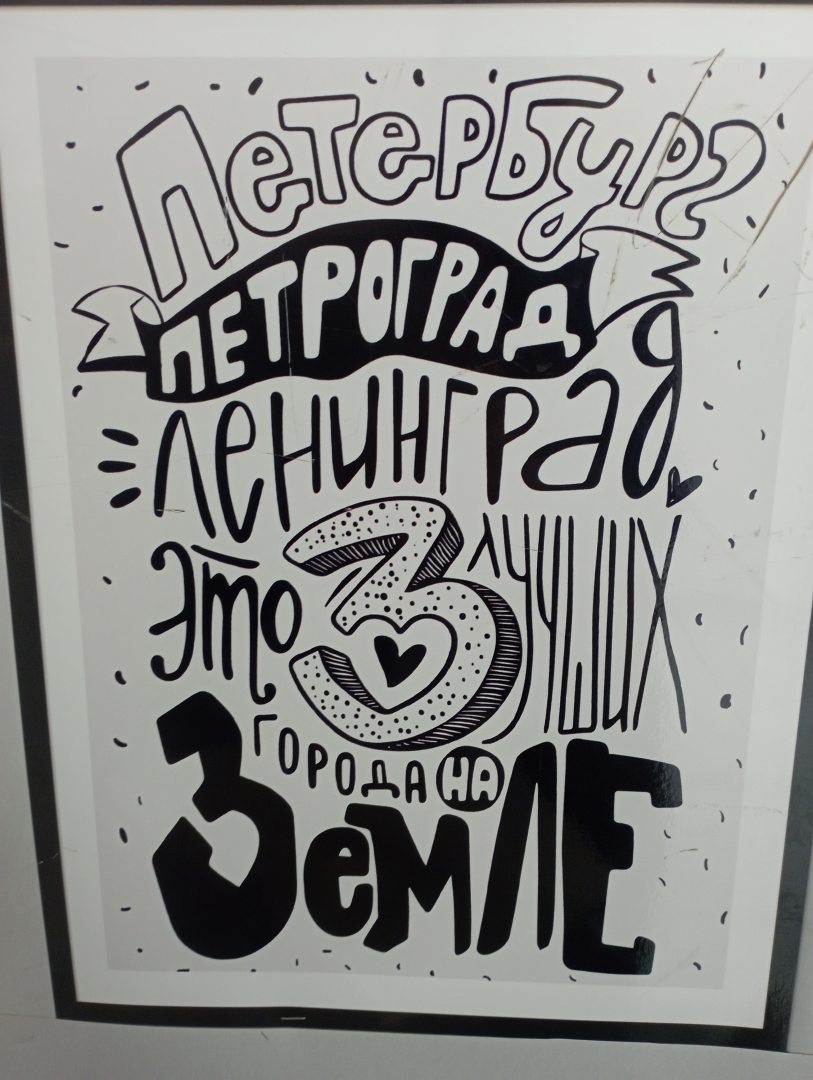 Петербург
ПЕТРОГРАД
Ленинград
Это 3 лучших
города на
Земле